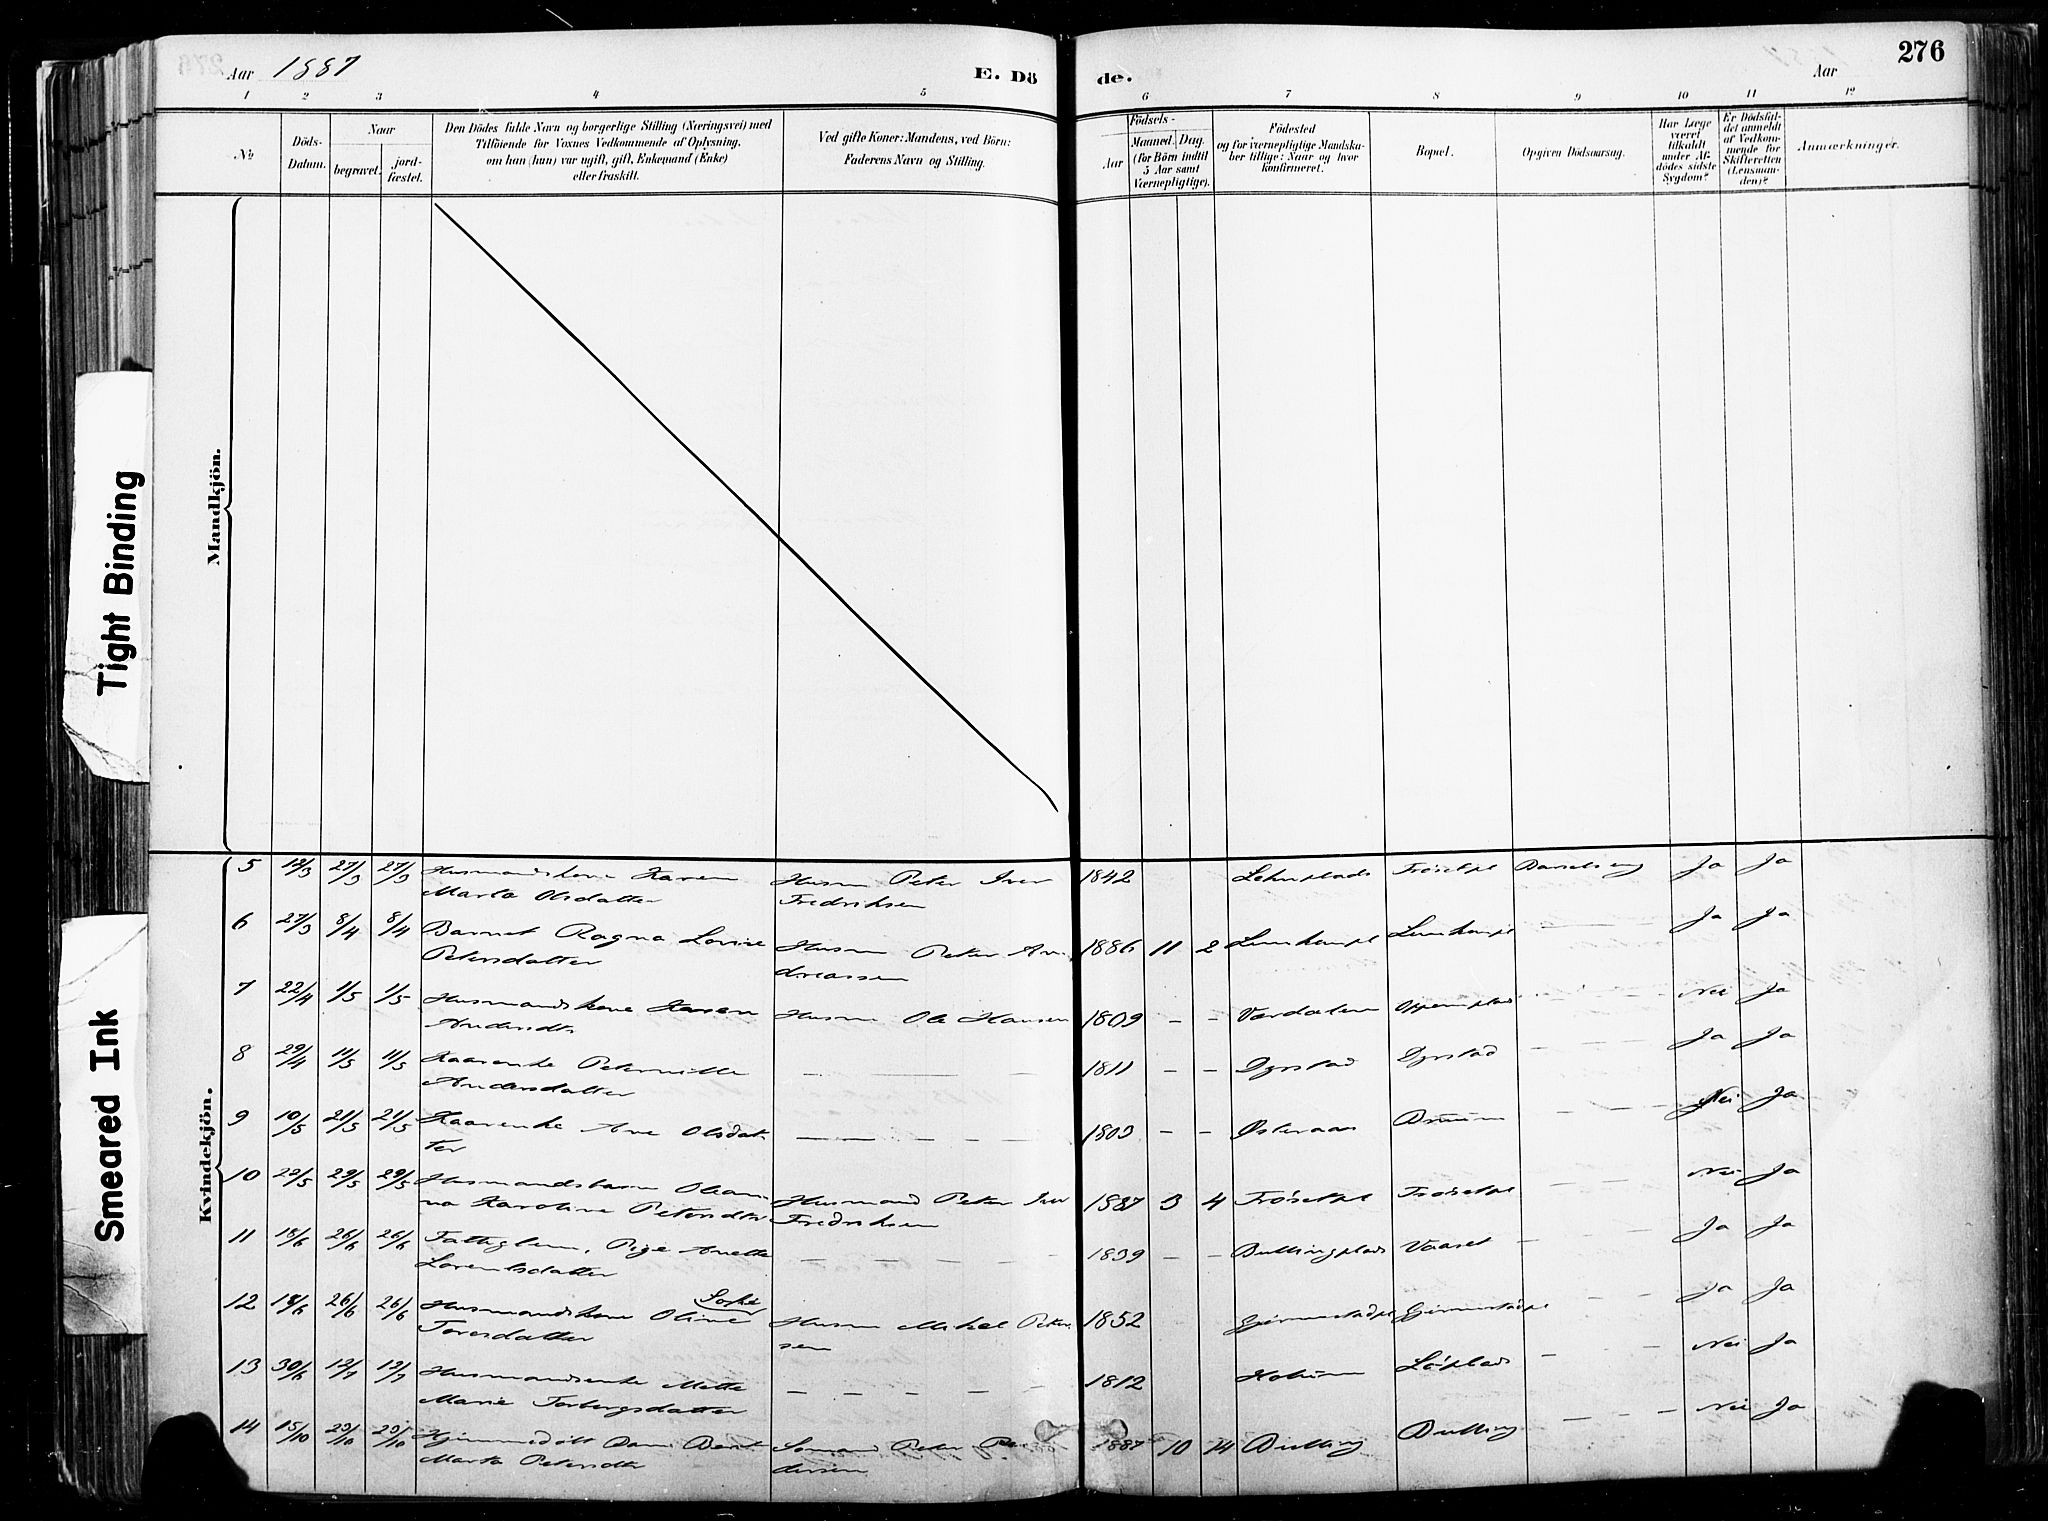 276
Aar 1887
E. Dö
de.
Aar
1 2 3 4 5 6 7 8 9 10 11 12
No
Döds-
Datum.
Naar
begravet.
jord-
fæstet.
Den Dödes fulde Navn og borgerlige Stilling (Næringsvei) med
Tilföiende for Voxnes Vedkommende af Oplysning,
om han (hun) var ugift, gift, Enkemand (Enke)
eller fraskilt.
Ved gifte Koner: Mandens, ved Börn:
Faderens Navn og Stilling.
Födsels-
Aar
Maaned. Dag.
(for Börn indtil
5 Aar samt
Værnepligtige).
Födested
og for værnepligtige Mandska-
ber tillige: Naar og hvor
konfirmeret.
Bopæl.
Opgiven Dödsaarsag.
Har Læge
været
tilkaldt
under Af-
dödes sidste
Sygdom?
Er Dödsfal-
det anmeldt
af Vedkom-
mende for
Skifteretten
(Lensman-
den)?
Anmærkninger.
Mandkjön.
Tight Binding
Smeared Ink
Kvindekjön.
5 12/3 27/3 27/3 Husmandskone Karen Husm Peter Iver 1842 Frösetpl Barselseng Ja Ja
Marta Olsdatter Fredriksen
6 27/3 8/4 8/4 Barnet Ragna Lovise Husm Peter An 1886 11 2 Ja Ja
Petersdatter dreassen
7 22/4 1/5 1/5 Husmandskone Karen Husm Ole Hansen 1809 – – Værdalen Nei Ja
Andersdt
8 29/4 11/5 11/5 Kaarenke Peternille 1811 – – Dyrstad Dyrstad Ja Ja
Andersdatter
9 10/5 21/5 21/5 Kaarenke Ane Olsdat 1803 – – Østeraas Nei Ja
ter
10 22/5 29/5 29/5 Husmandsbarn Olean Husmand Peter Iver 1887 3 4 Frösetpl Frösetpl Nei Ja
na Karoline Petersdtr Fredriksen
11 18/6 26/6 26/6 Fattiglem, Pige Anette 1839 – – Vaaset Ja Ja
Lorentsdatter
12 18/6 26/6 26/6 Husmandskone Oline Husm Mikal Peter 1852 Ja Ja
Toresdatter sen
13 30/6 12/7 12/7 Husmandsenke Mette 1812 Nei Ja
Marie Torbergsdatter
14 15/10 23/10 23/10 Hjemmedöbt Barn Peter 1887 10 14 Nei Ja
Marta Petersdtr